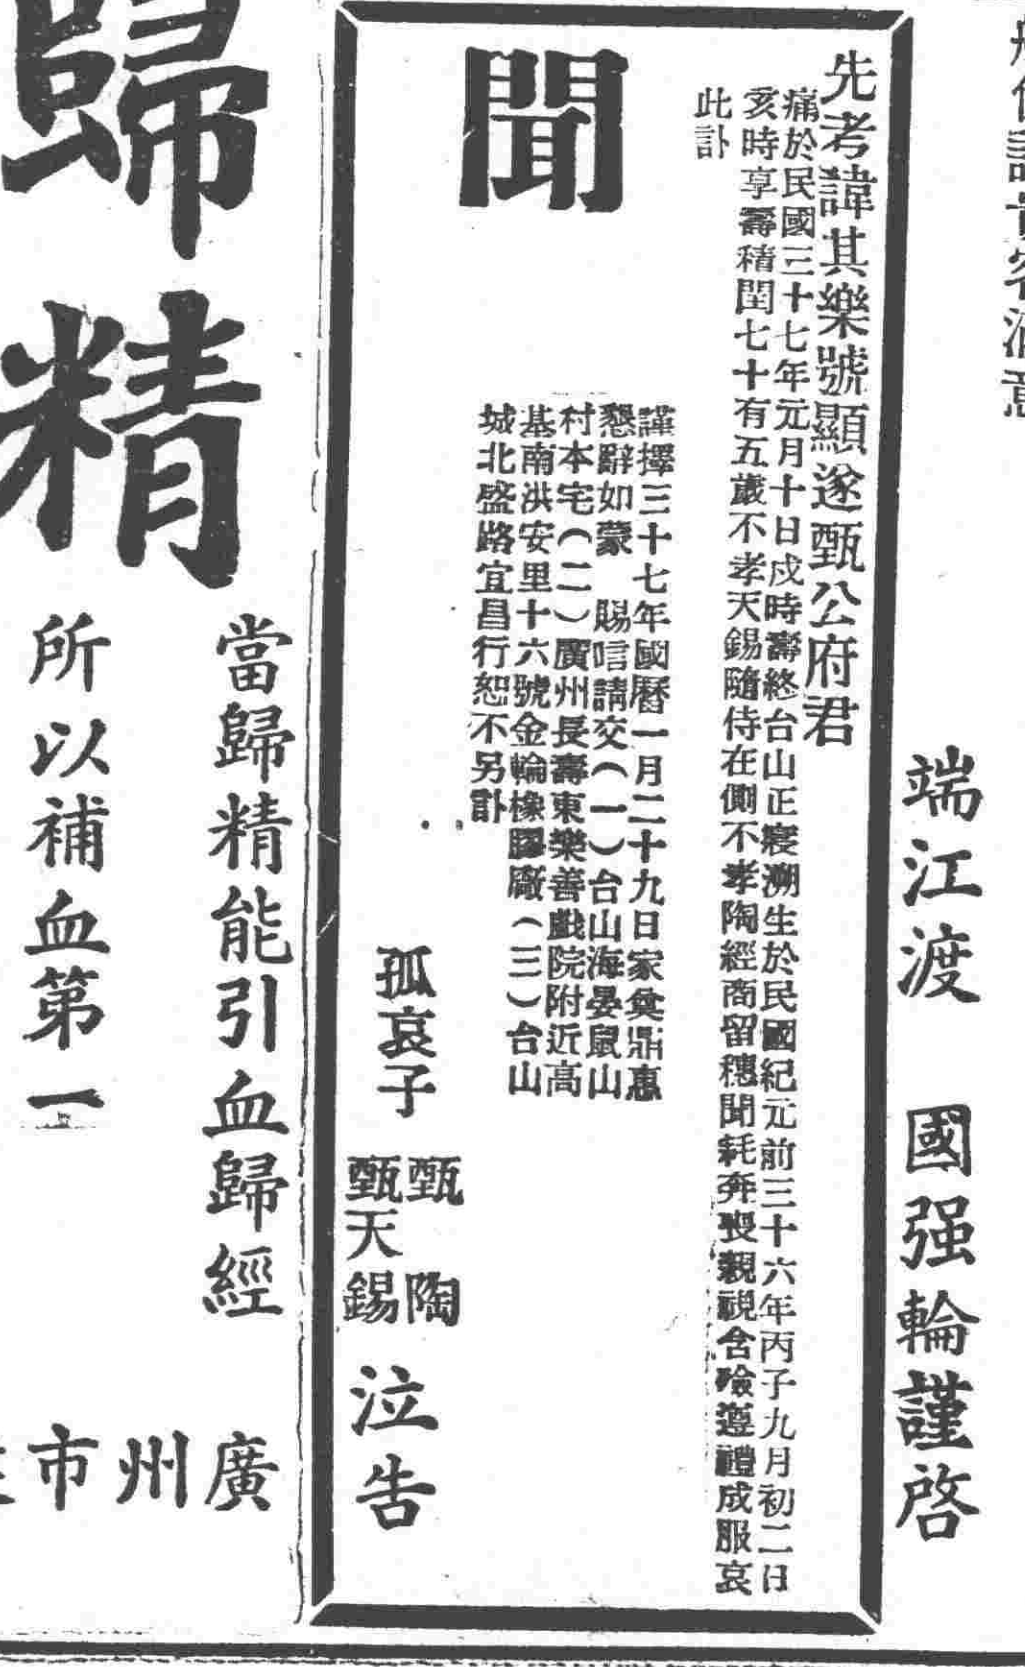 意
端江渡　國强輪謹啓
先考諱其樂號顯遂甄公府君
痛於民國三十七年元月十日戌時壽終台山正寢溯生於民國紀元前三十六年丙子九月初二日
亥時享壽積閏七十有五歲不孝天錫隨侍在側不孝陶經商留穗聞耗奔喪親視含殮遵禮成服哀
此訃
聞
謹擇三十七年國曆一月二十九日家奠鼎惠
懇辭如蒙　賜唁請交(一)台山海晏鼠山
村本宅(二)廣州長壽東樂善戲院附近高
基南洪安里十六號金輪橡膠廠(三)台山
城北盛路宜昌行恕不另訃
孤哀子　甄陶
甄天錫
泣告
歸精
當歸精能引血歸經
所以補血第一
廣州市